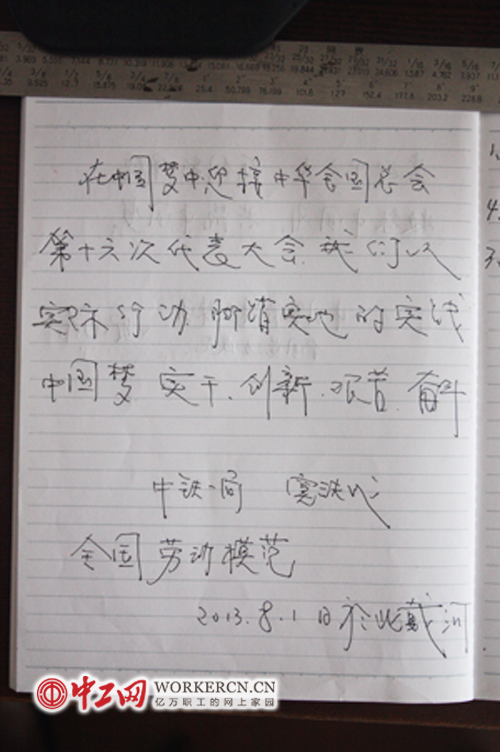 在中国梦中迎接中华全国总会
第十六次代表大会.我们以
实际行动.脚踏实地的实践
中国梦 实干.创新.艰苦.奋斗
中铁一局 窦铁成
全国劳动模范
2013.8.1日於北戴河
中工网 WORKERCN.CN
亿万职工的网上家园